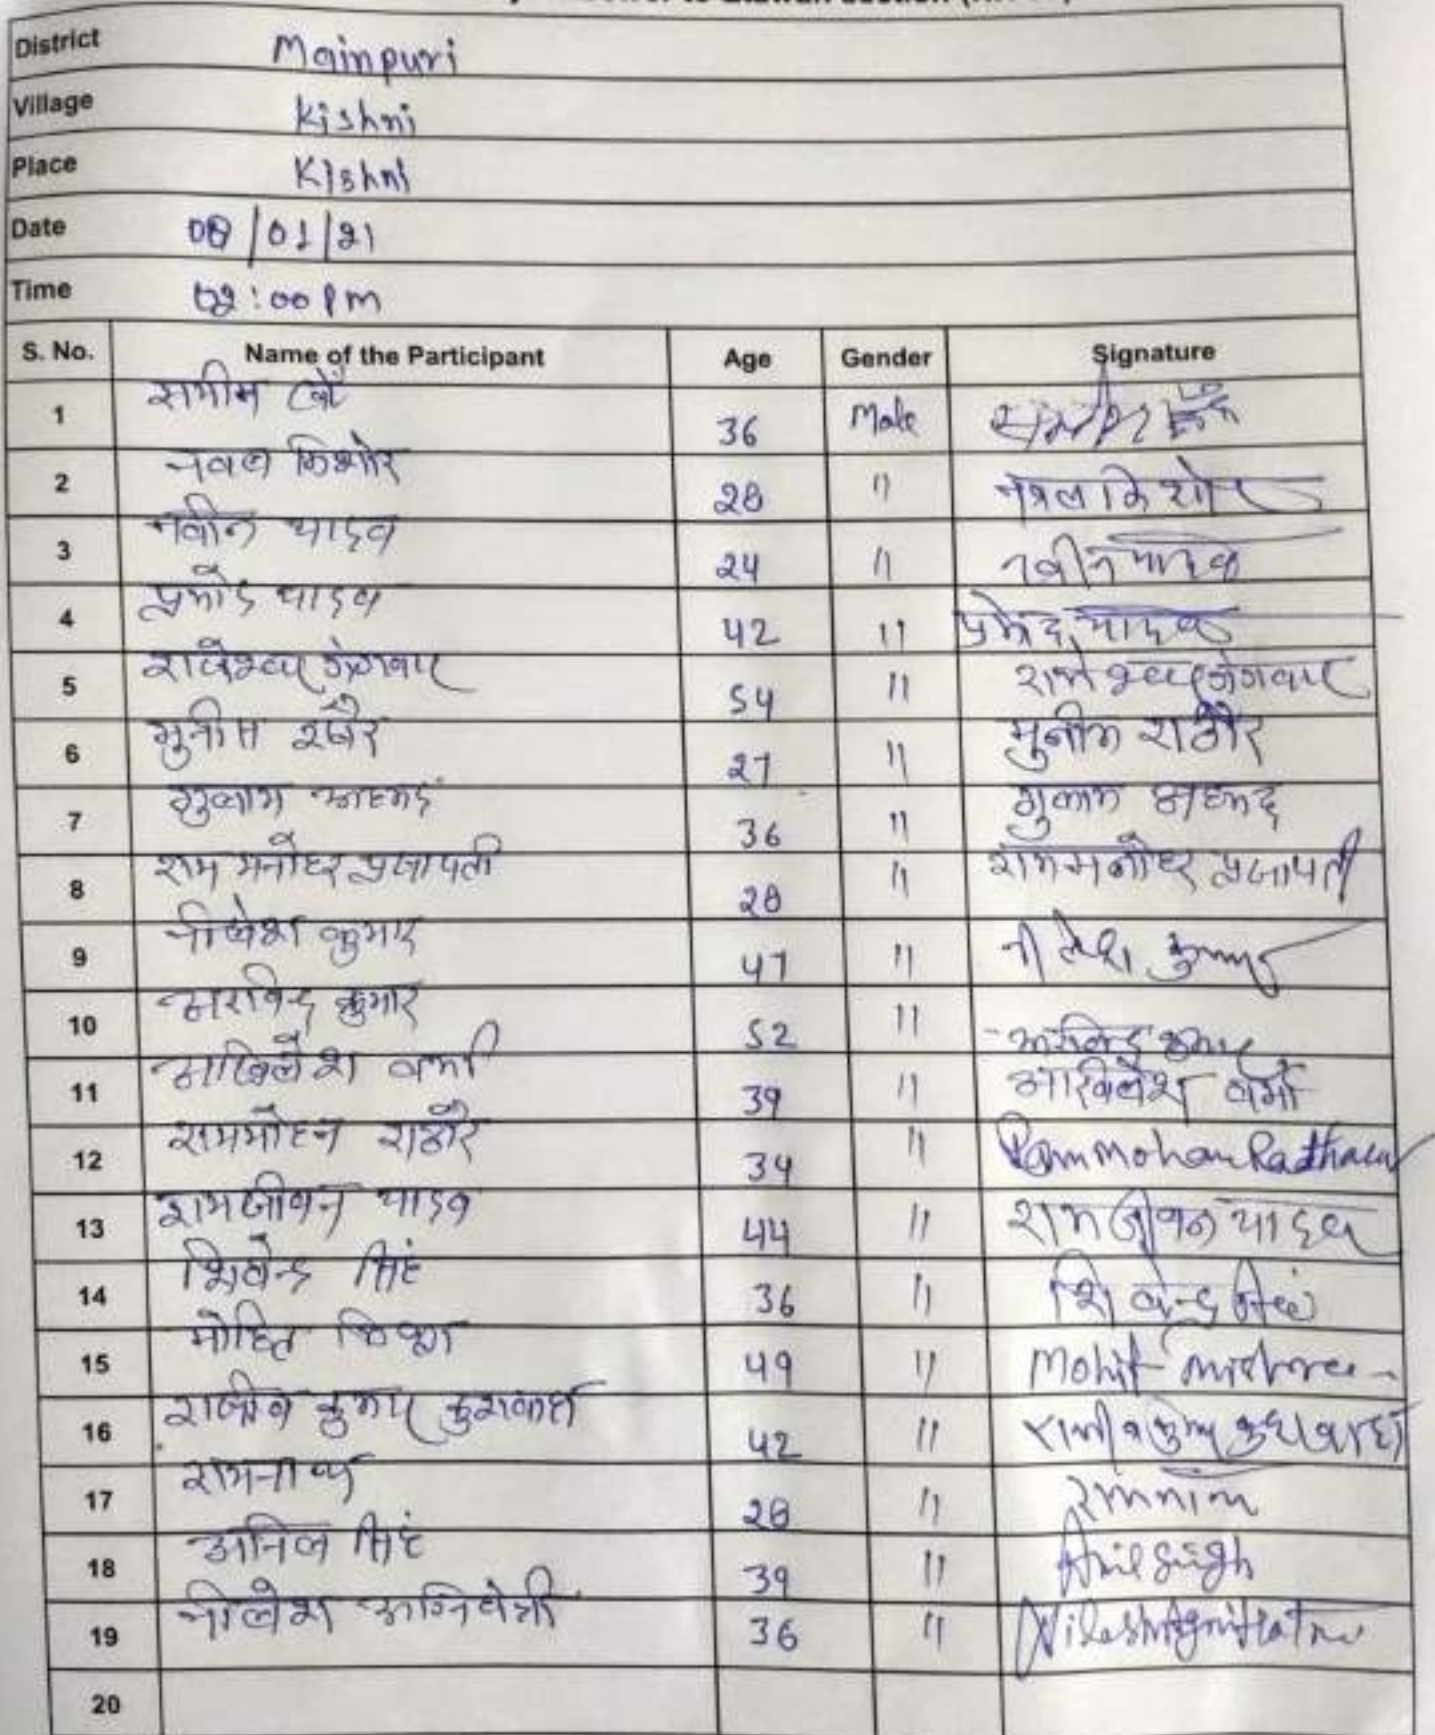 District Mainpuri
Village Kishni
Place Kishni
Date 08/01/21
Time 02:00 PM
S. No. Name of the Participant Age Gender Signature
1 समीम खाँ 36 Male
2 नवल किशोर 28 " नवल किशोर
3 नवीन यादव 24 " नवीन यादव
4 प्रमोद यादव 42 " प्रमोद यादव
5 राजेश्वर गंगवार 54 " राजेश्वर गंगवार
6 मुनीम राठौर 27 " मुनीम राठौर
7 गुलाम अहमद 36 " गुलाम अहमद
8 राम मनोहर प्रजापती 28 " राम मनोहर प्रजापती
9 नीलेश कुमार 47 " नीलेश कुमार
10 अरविन्द कुमार 52 " अरविन्द कुमार
11 अखिलेश वर्मा 39 " अखिलेश वर्मा
12 राममोहन राठौर 34 " Rammohan Radhaur
13 रामजीवन यादव 44 " रामजीवन यादव
14 शिवेन्द्र सिंह 36 " शिवेन्द्र सिंह
15 मोहित मिश्रा 49 " Mohit mishra
16 राजीव कुमार कुशवाहा 42 " राजीव कुमार कुशवाहा
17 28 "
18 अनिल सिंह 39 " Anil Singh
19 नीलेश अग्निहोत्री 36 " Nilesh Agnihotri
20